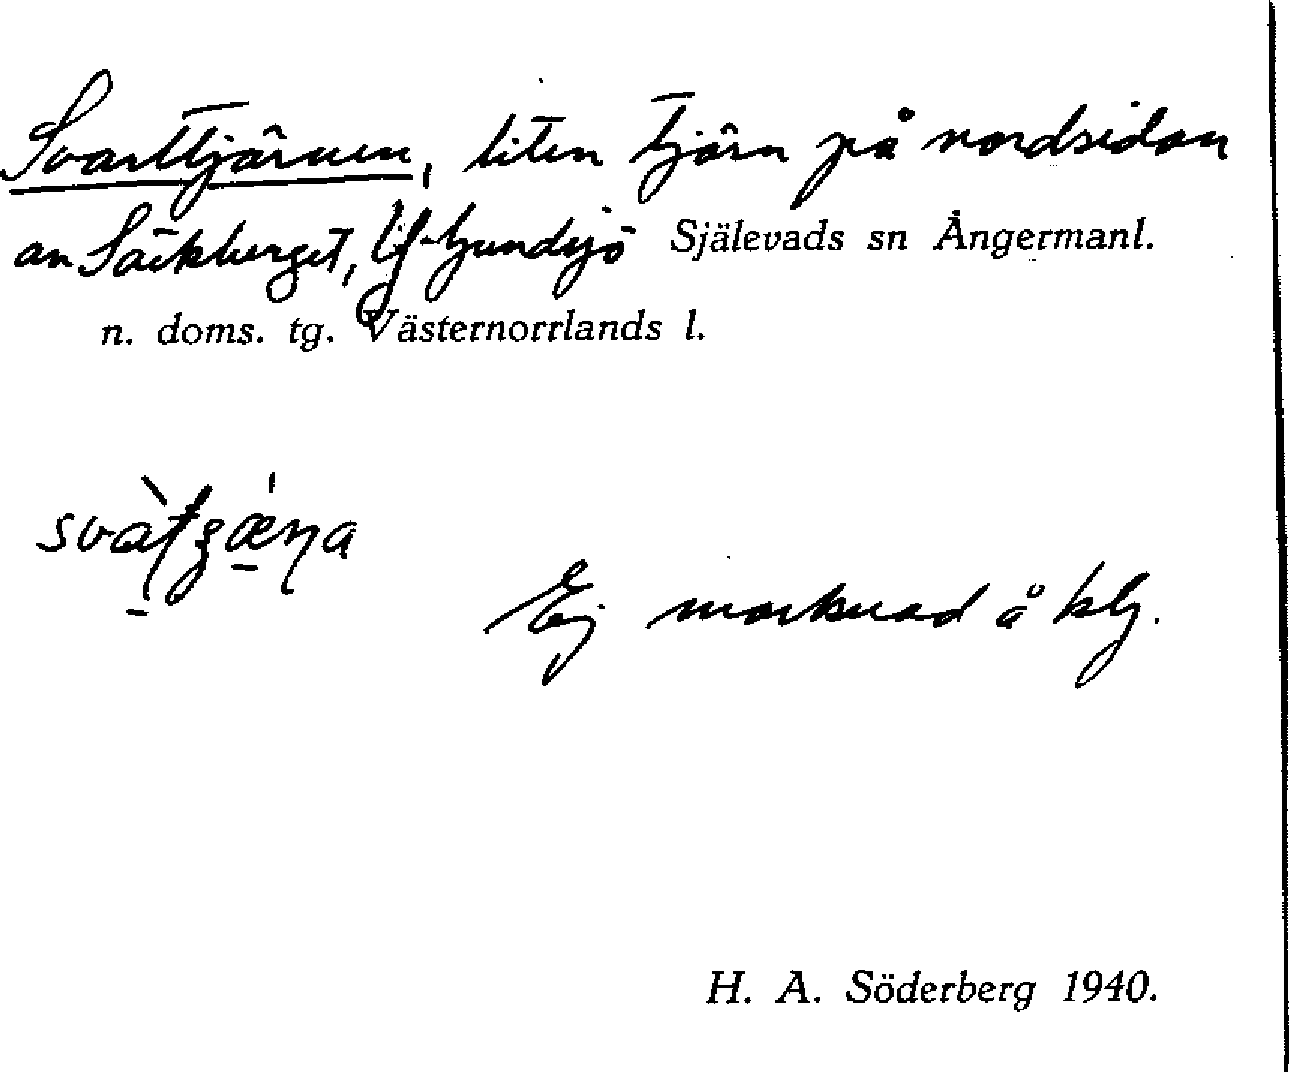 Svarttjärnen, liten tjärn på nordsidan
av Säckberget, Själevads sn Ångermanl.
n. doms. tg. Västernorrlands l.
Ej markerad å kbl.
H. A. Söderberg 1940.